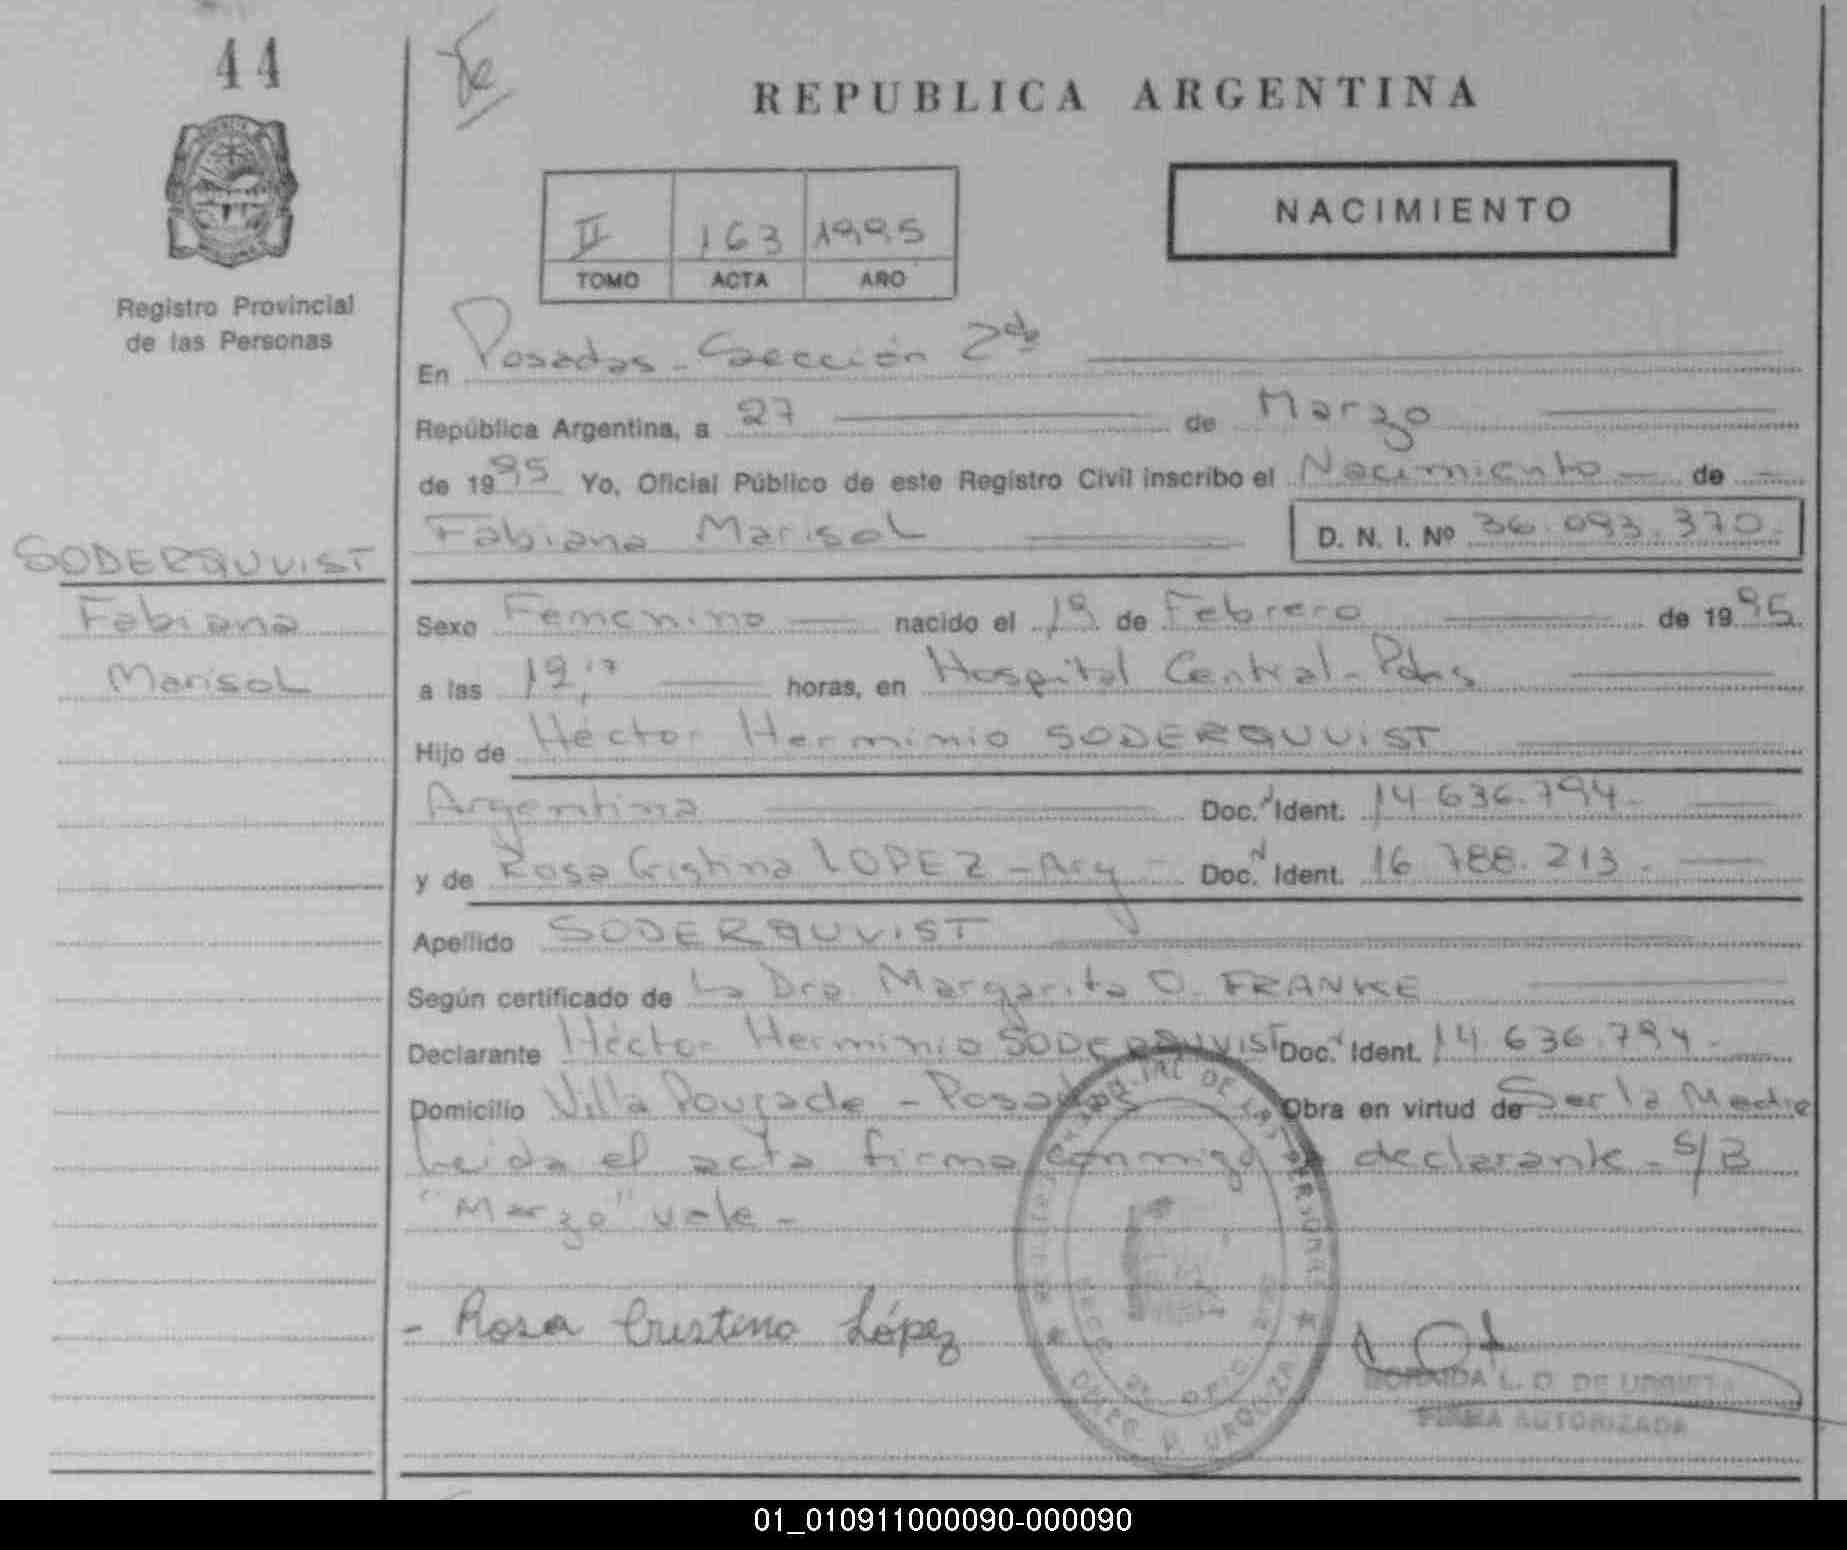 44
Registro Provincial
de las Personas
REPUBLICA ARGENTINA
II 163 1995
TOMO ACTA AÑO
NACIMIENTO
En Posadas - Sección 2da
República Argentina, a 27 de Marzo
de 1995 Yo, Oficial Público de este Registro Civil inscribo el Nacimiento de
Fabiana Marisol D. N. I. Nº 36.093.370.
SODERQUVIST
Fabiana
Marisol
Sexo Femenino nacido el 19 de Febrero de 1995.
a las 19,17 horas, en Hospital Central - Pdas
Hijo de Héctor Herminio SODERQUVIST
Argentina Doc. Ident. 14.636.794.
y de Rosa Cristina LOPEZ - Arg - Doc. Ident. 16.788.213.
Apellido SODERQUVIST
Según certificado de La Dra. Margarita O. FRANKE
Declarante Héctor Herminio SODERQUVIST Doc. Ident. 14.636.794.
Domicilio Villa Poujade - Posadas Obra en virtud de Ser la Madre
Leida el acta firma conmigo declarante - S/B
"Marzo" vale -
- Rosa Cristina López
L. O. DE
FIRMA AUTORIZADA
01_010911000090-000090